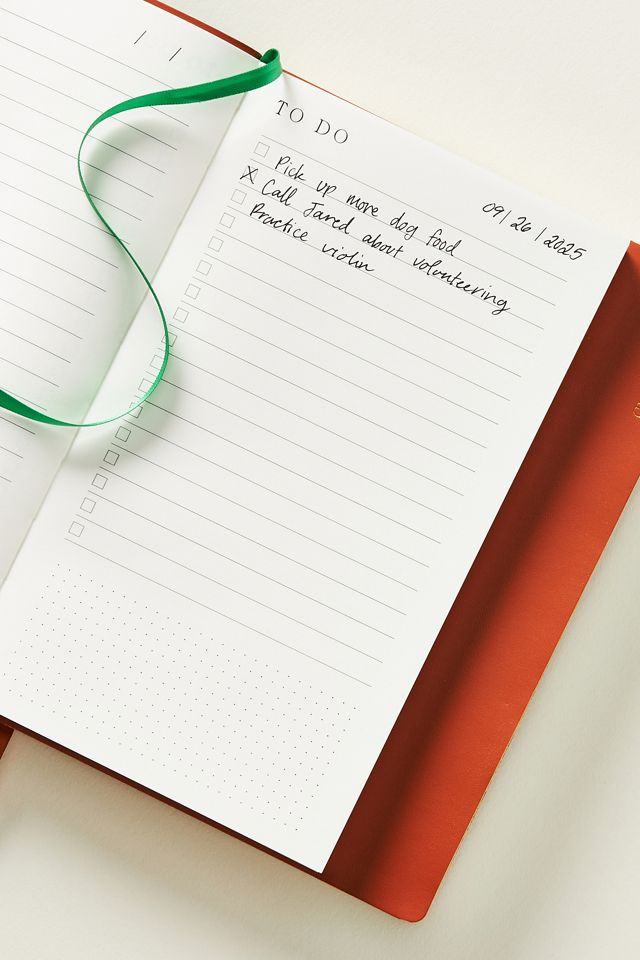 TO DO
09/26/2025
Pick up more dog food
X Call Jared about volunteering
Practice violin